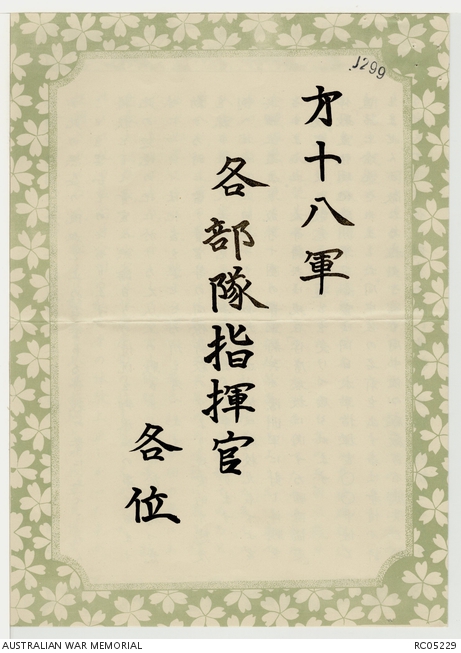 J299
才十八軍
各部隊指揮官
各位
AUSTRALIAN WAR MEMORIAL
RC05229